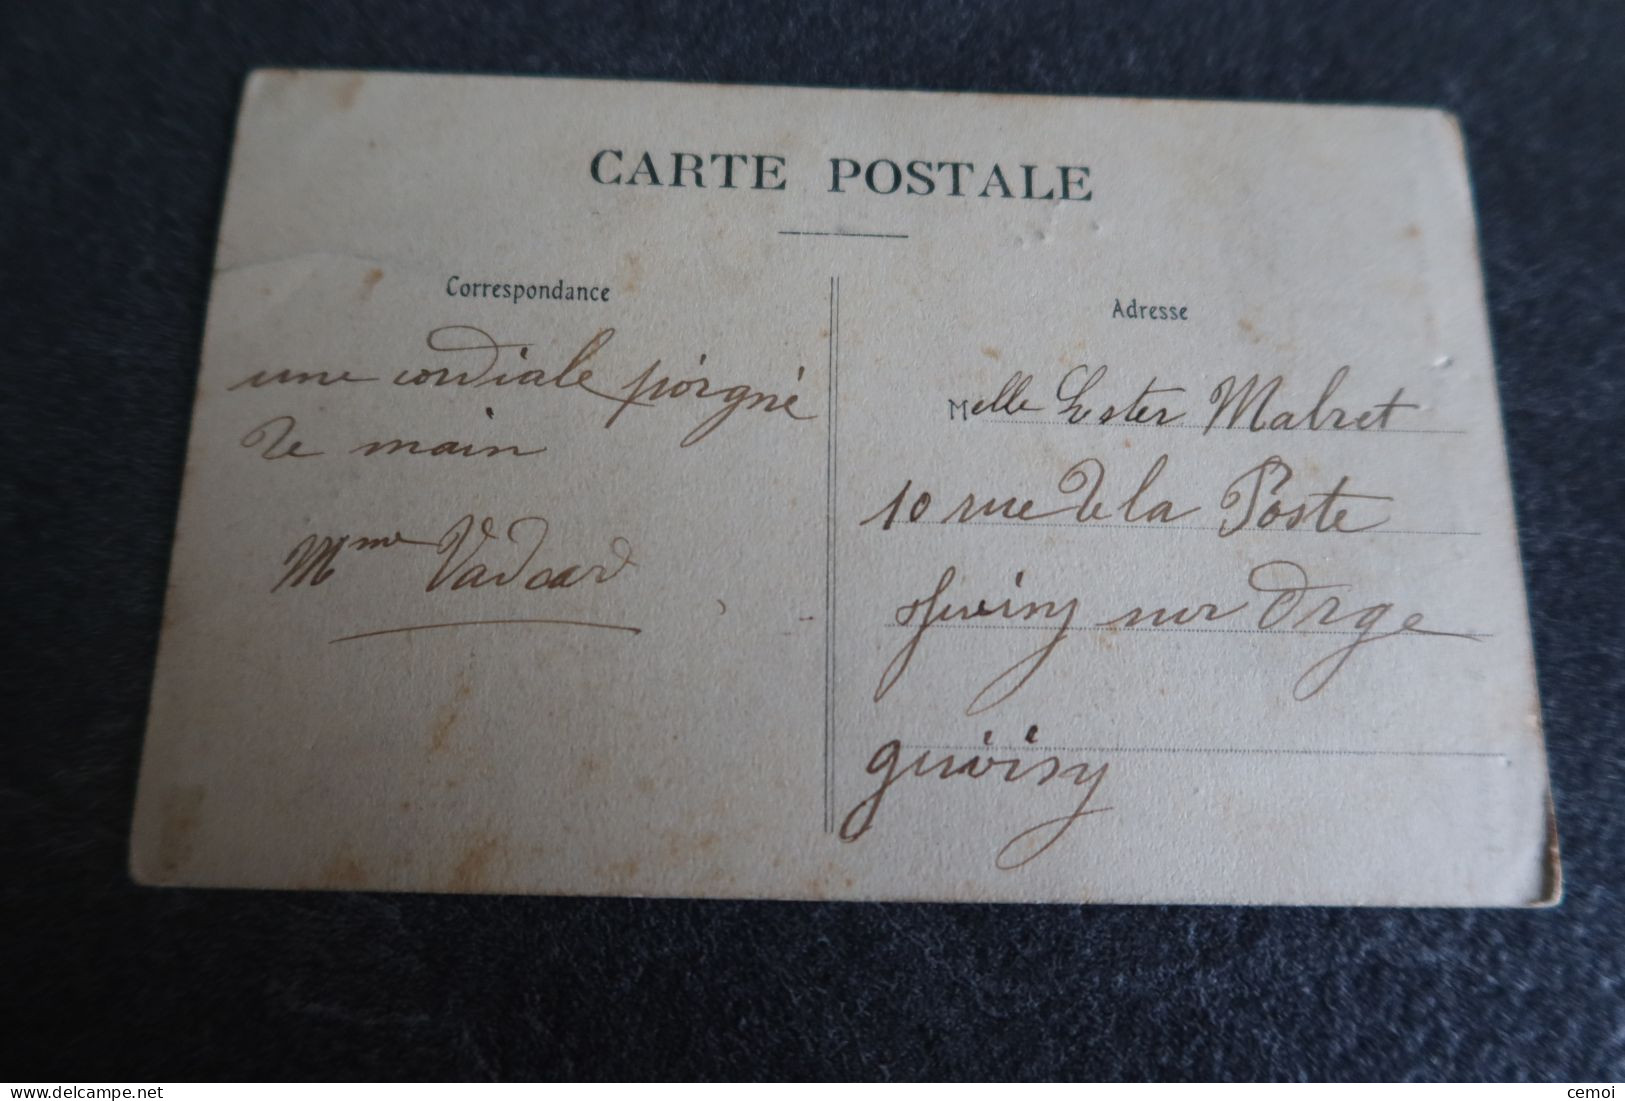 CARTE POSTALE
Correspondance
une cordiale poigné
de main
Mme Vadcard
Adresse
Melle Ester Malret
10 rue de la Poste
sur Orge
www.delcampe.net
cemoi